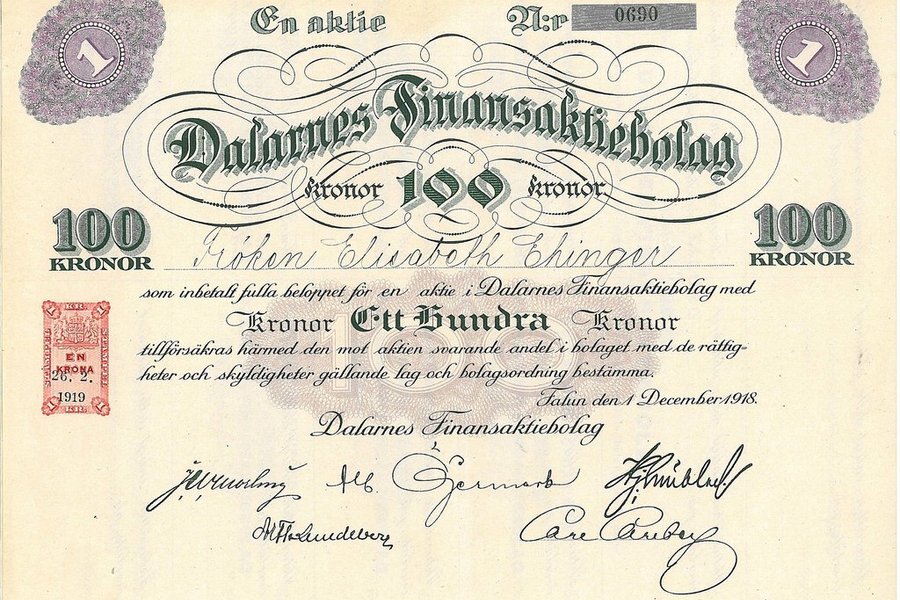 1 En aktie N:r 0690 1
Dalarnes Finansaktiebolag
Kronor 100 Kronor
100 KRONOR 100 KRONOR
Fröken Elisabeth Ehinger
som inbetalt fulla beloppet för en aktie i Dalarnes Finansaktiebolag med
Kronor Ett Hundra Kronor
tillförsäkras härmed den mot aktien svarande andel i bolaget med de rättig-
heter och skyldigheter gällande lag och bolagsordning bestämma.
Falun den 1 December 1918.
Dalarnes Finansaktiebolag
EN
KRONA
26. 2.
1919
100